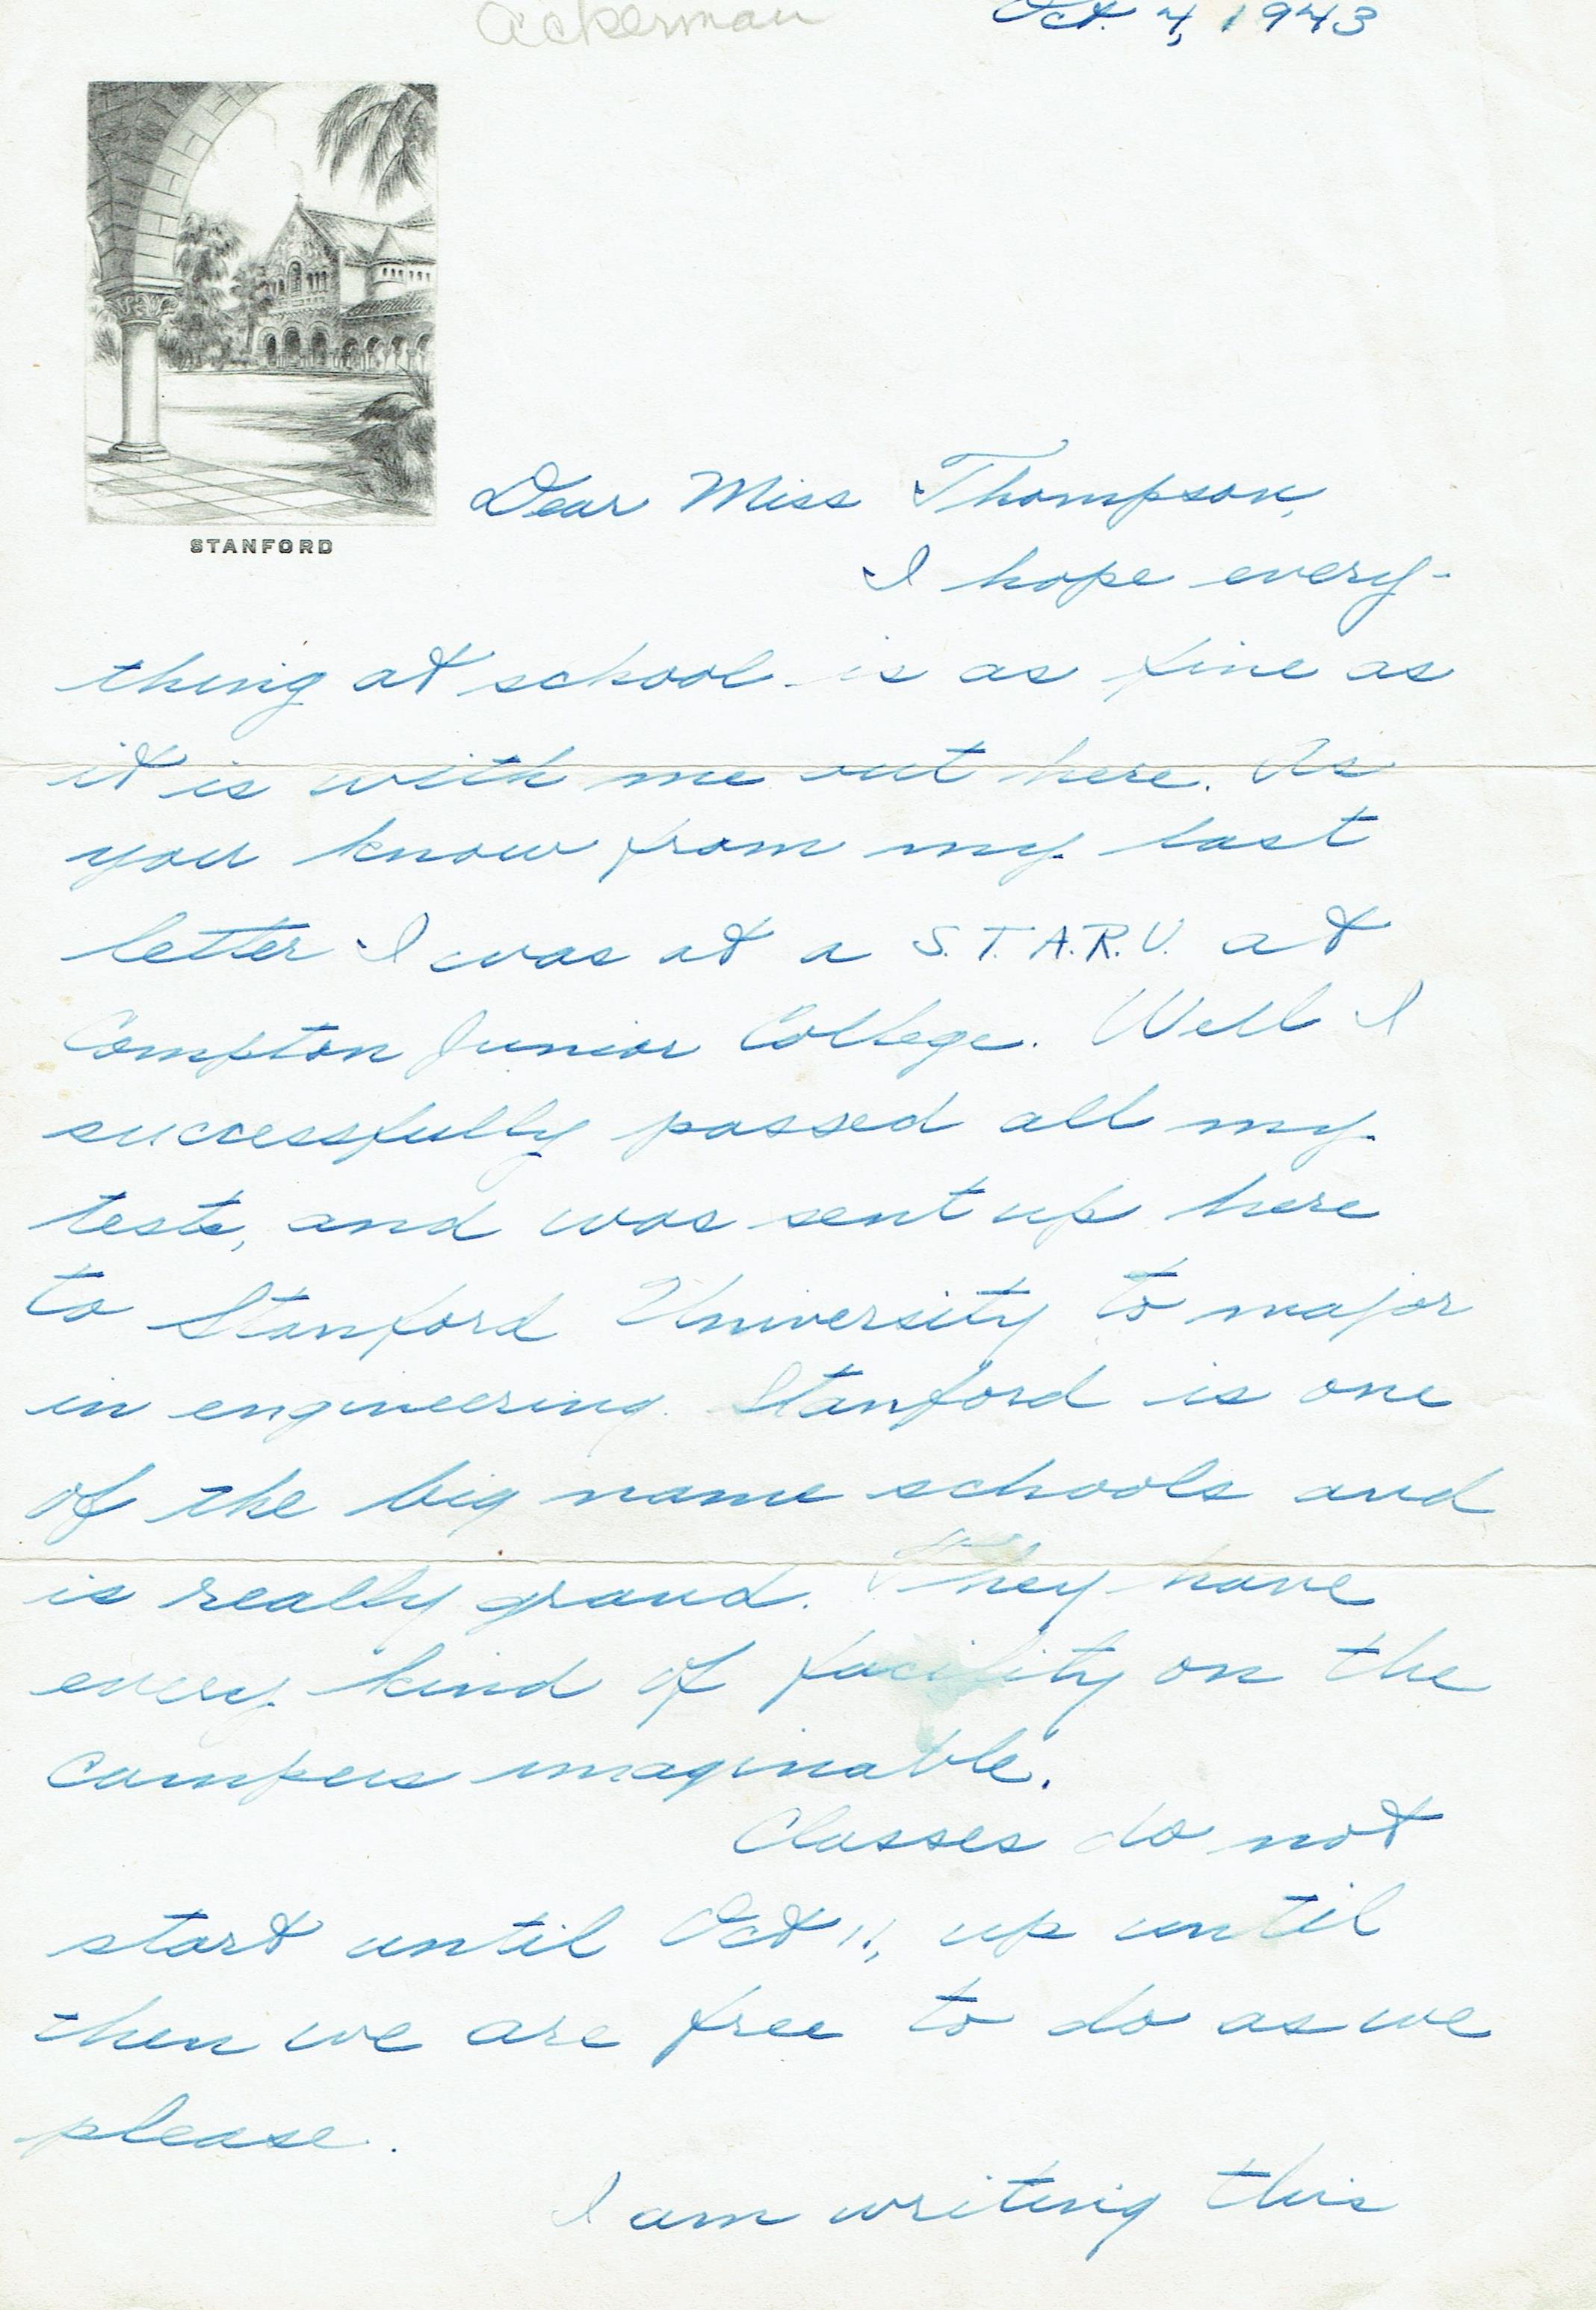 Ackerman
Oct. 4, 1943
STANFORD
Dear Miss Thompson,
I hope every-
thing at school is as fine as
it is with me out here. As
you know from my last
letter I was at a S.T.A.R.U. at
Compton Junior College. Well I
successfully passed all my
tests, and was sent up here
to Stanford University to major
in engineering. Stanford is one
of the big name schools and
is really grand. They have
every kind of facility on the
campus imaginable.
Classes do not
start until Oct 11, up until
then we are free to do as we
please.
I am writing this